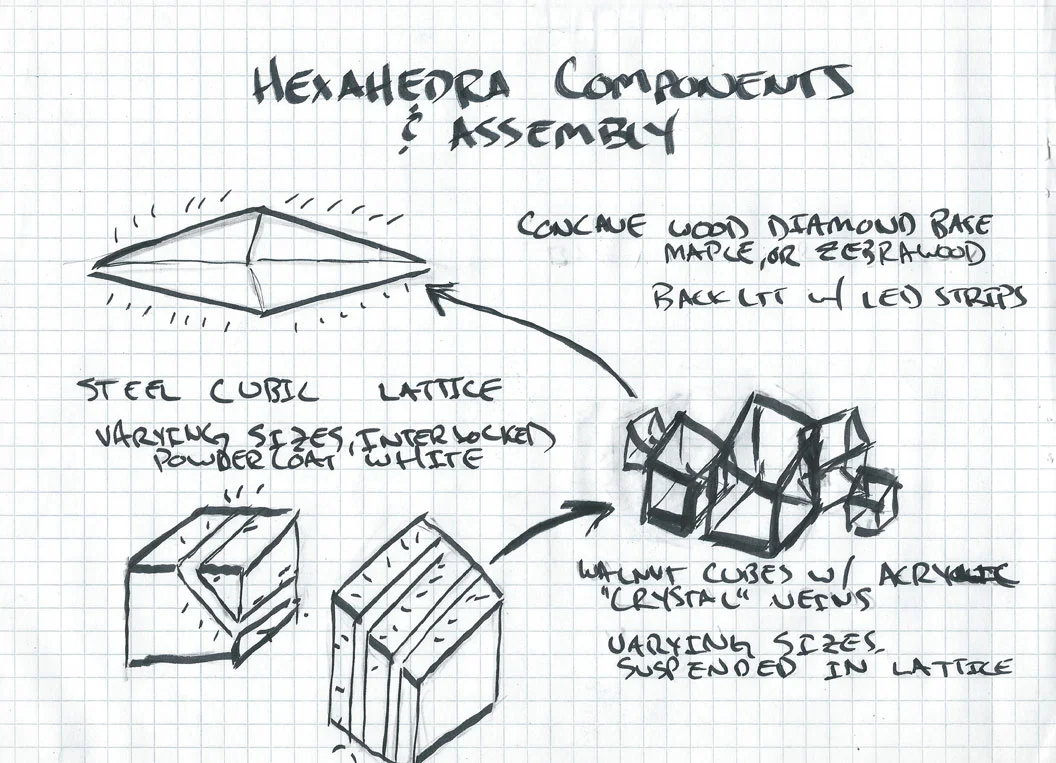 HEXAHEDRA COMPONENTS
& ASSEMBLY
CONCAVE WOOD DIAMOND BASE
MAPLE, OR ZEBRAWOOD
BACKLIT W/ LED STRIPS
STEEL CUBIC LATTICE
VARYING SIZES, INTERLOCKED
POWDERCOAT WHITE
WALNUT CUBES W/ ACRYLIC
"CRYSTAL" VEINS
VARYING SIZES,
SUSPENDED IN LATTICE